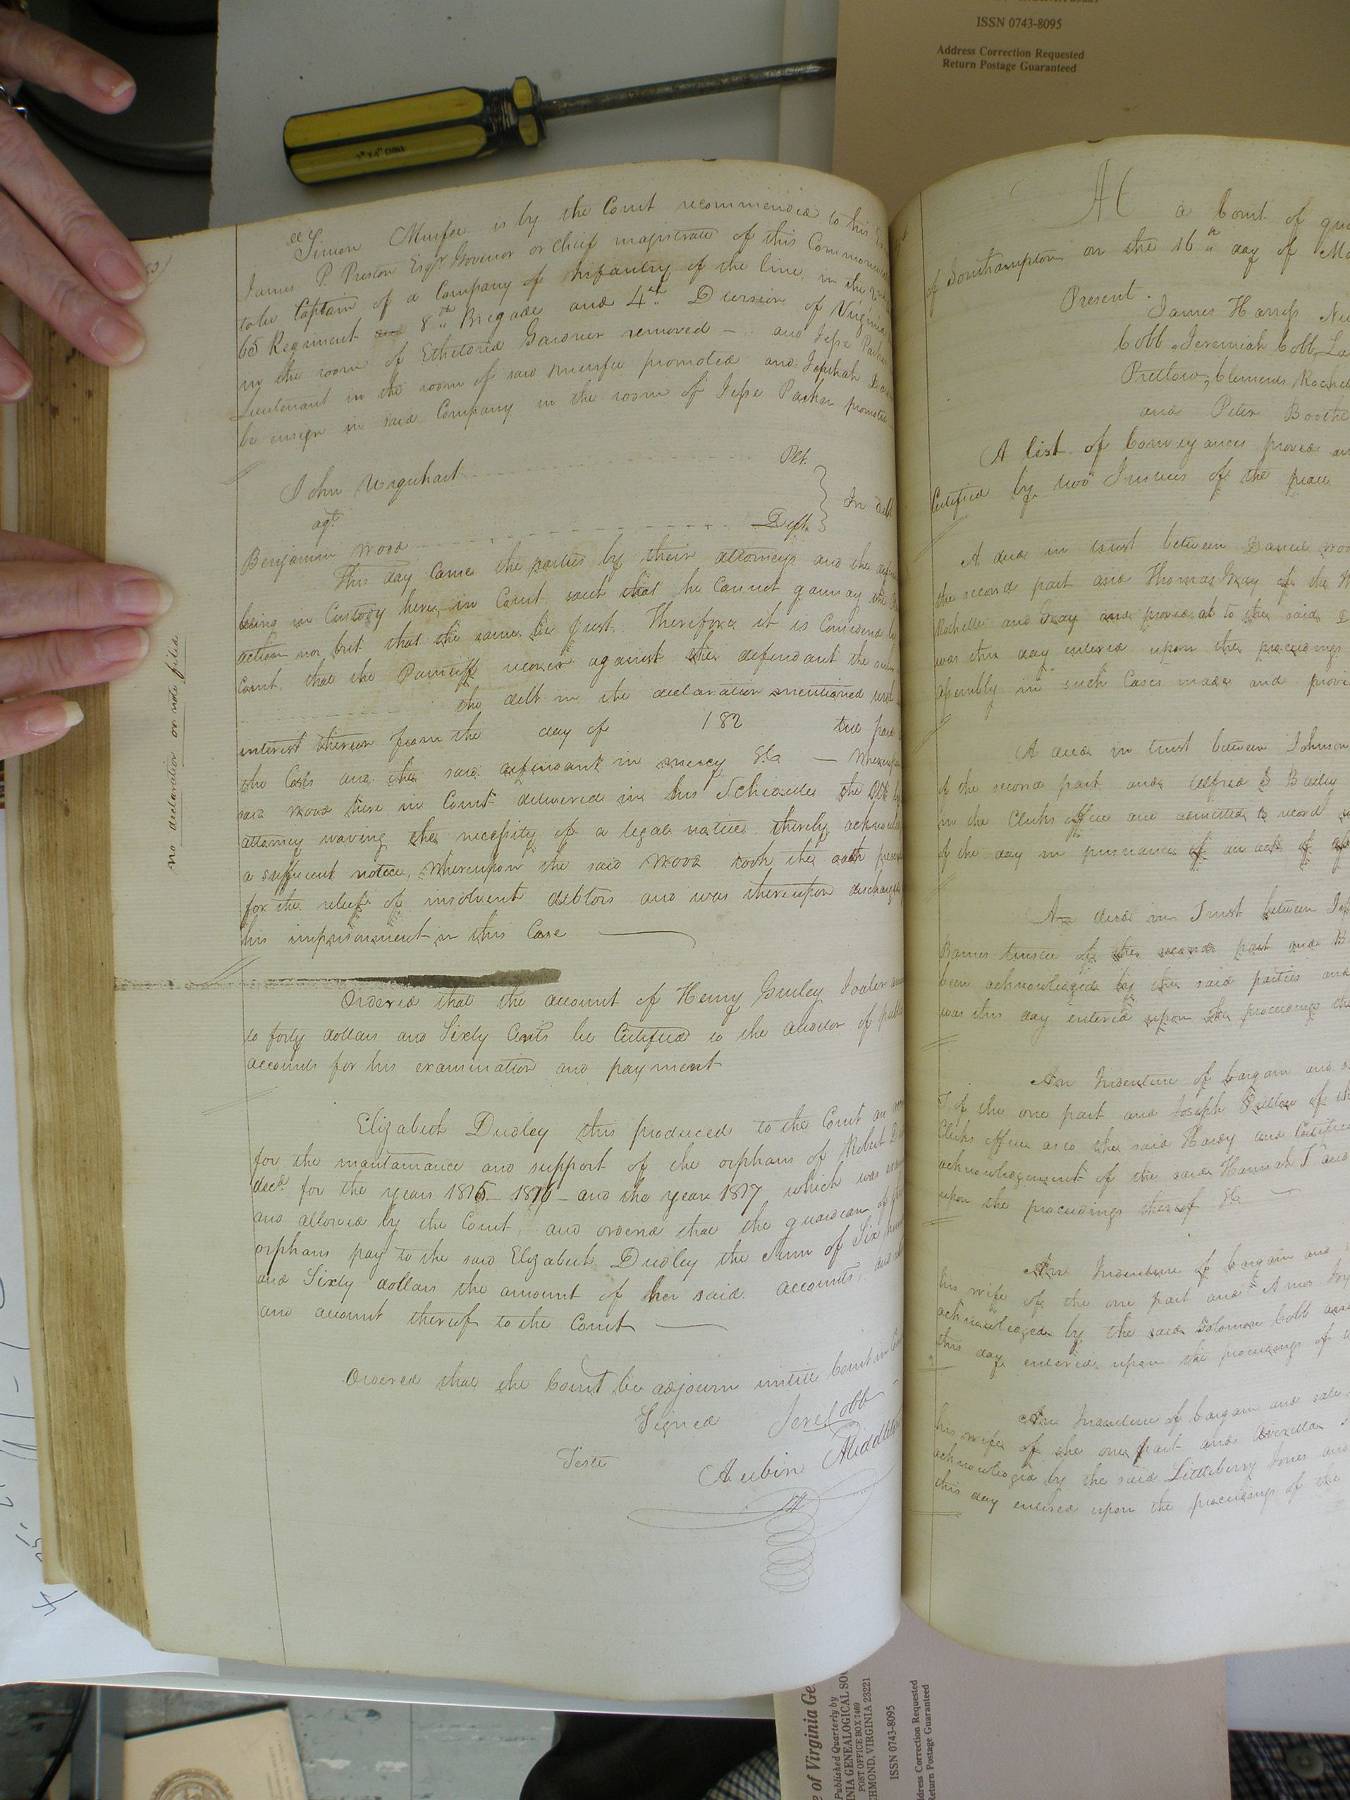 ISSN 0743-8095
Address Correction Requested
Return Postage Guaranteed
Simon Murfee is by the Court recommended to his
James P. Preston Esqr. Govenor or chief magistrate of this Commonwe
to be Captain of a Company of Infantry of the line, in the
65 Regiment 8th Brigade and 4th Division of Virginia
in the room of Etheldred Gardner removed — and Jesse Parker
Lieutenant in the room of said Murfee promoted and Jephthah
be ensign in said Company in the room of Jesse Parker promoted
John Urquhart Plt.
agt In debt
Benjamin Wood Deft.
This day came the parties by their attorneys and the def
being in Custody here in Court saith that he Cannot gainsay the
action nor but that the same be Just. Therefore it is Considered by
Court, that the Plaintiff recover against the defendant the
the debt in the declaration mentioned with
interest thereon from the day of 182 till paid
the Costs and the said defendant in mercy &c — Whereupon
said Wood here in Court delivered in his Schedule the Plt by
attorney waving the necessity of a legal notice thereby acknow
a sufficient notice, Whereupon the said Wood took the oath pres
for the relief of insolvent debtors and was thereupon discharged
his imprisonment in this Case
no declaration or note filed
Ordered that the account of Henry Gurley Jailer
to forty dollars and Sixty Cents be Certified to the auditor of public
accounts for his examination and payment
Elizabeth Dudley this produced to the Court an
for the maintainance and support of the orphans of Robert
decd. for the years 1815 – 1816 – and the year 1817 which was
and allowed by the Court, and ordered that the guardian of
orphans pay to the said Elizabeth Dudley the Sum of Six
and Sixty dollars the amount of her said accounts, and
and account thereof to the Court
Ordered that the Court be adjourn untill Court in
Signed Jere Cobb
Teste
At a Court of
of Southampton on the 16th day of
Present.
James Harriss
Cobb, Jeremiah Cobb,
Pretlow, Clements
and Peter Booth
A list of Conveyances proved
Certified by two Justices of the peace
A deed in trust between Daniel
the second part and Thomas Gray of the
Rochelle and Gray and proved as to the said
was this day entered upon the proceedings
assembly in such Cases made and
A deed in trust between Johnson
of the second part and Alfred
in the Clerks office and admitted to record
of the day in pursuance of an act of
A deed in Trust between
Barnes trustee of the second part and
been acknowledged by the said parties and
was this day entered upon the proceedings
An Indenture of bargain and
T of the one part and Joseph of the
Clerks office as to the said Hardy and
acknowledgement of the said Hannah T and
upon the proceedings thereof &c
An Indenture of bargain and
his wife of the one part and Amos
acknowledged by the said Solomon Cobb
this day entered upon the proceedings of
An Indenture of bargain and sale
his wife of the one part and
acknowledged by the said Littleberry Jones and
this day entered upon the proceedings of the
of Virginia Ge
Published Quarterly by
INIA GENEALOGICAL SO
POST OFFICE BOX 7469
CHMOND, VIRGINIA 23221
ISSN 0743-8095
dress Correction Requested
Return Postage Guaranteed